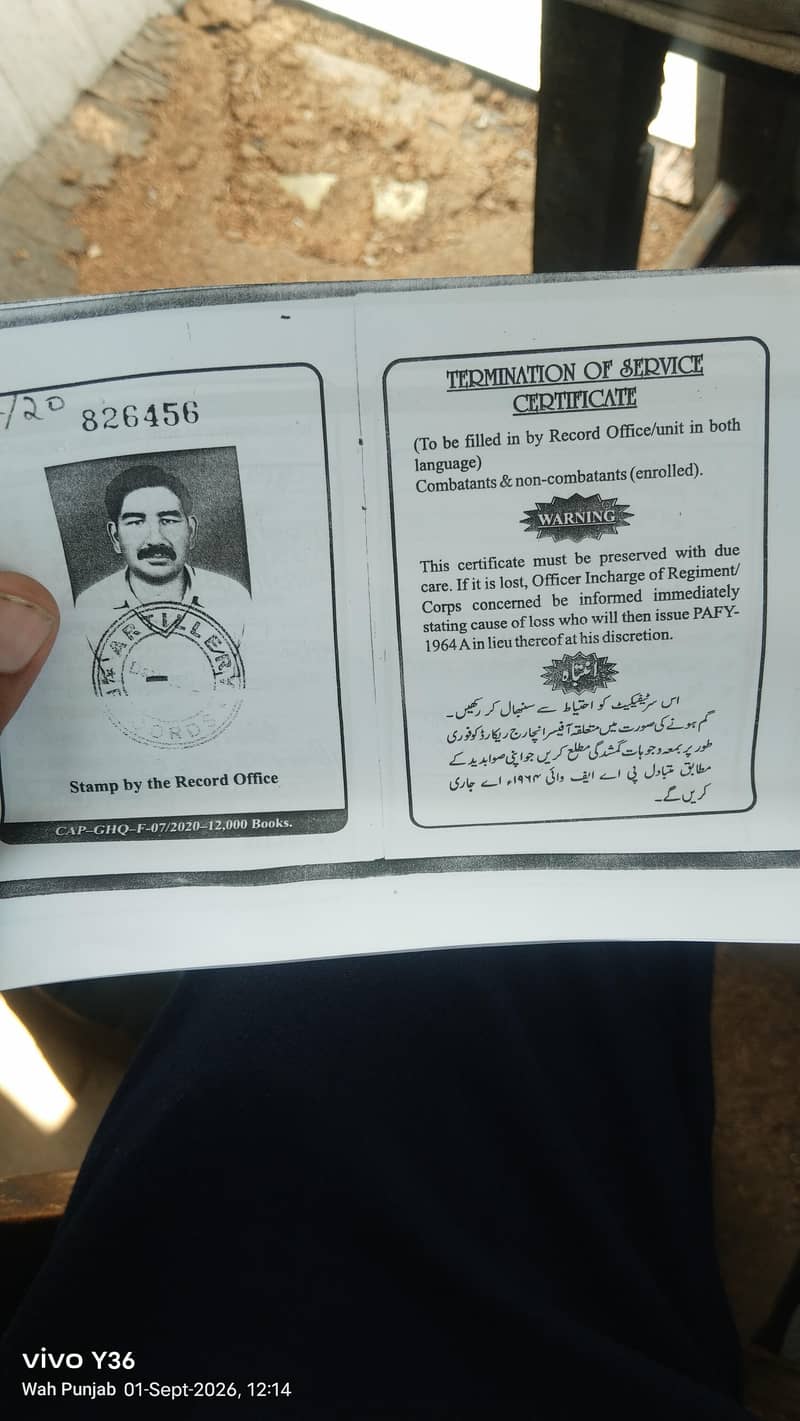 /20 826456
ARTILLERY
RECORDS
Stamp by the Record Office
CAP–GHQ–F–07/2020–12,000 Books.
TERMINATION OF SERVICE
CERTIFICATE
(To be filled in by Record Office/unit in both
language)
Combatants & non-combatants (enrolled).
WARNING
This certificate must be preserved with due
care. If it is lost, Officer Incharge of Regiment/
Corps concerned be informed immediately
stating cause of loss who will then issue PAFY-
1964 A in lieu thereof at his discretion.
انتباہ
اس سرٹیفیکیٹ کو احتیاط سے سنبھال کر رکھیں۔
گم ہونے کی صورت میں متعلقہ آفیسر انچارج ریکارڈ کو فوری
طور پر بمعہ وجوہات گمشدگی مطلع کریں جو اپنی صوابدید کے
مطابق متبادل پی اے ایف وائی ۱۹۶۴ء اے جاری
کریں گے۔
vivo Y36
Wah Punjab 01-Sept-2026, 12:14